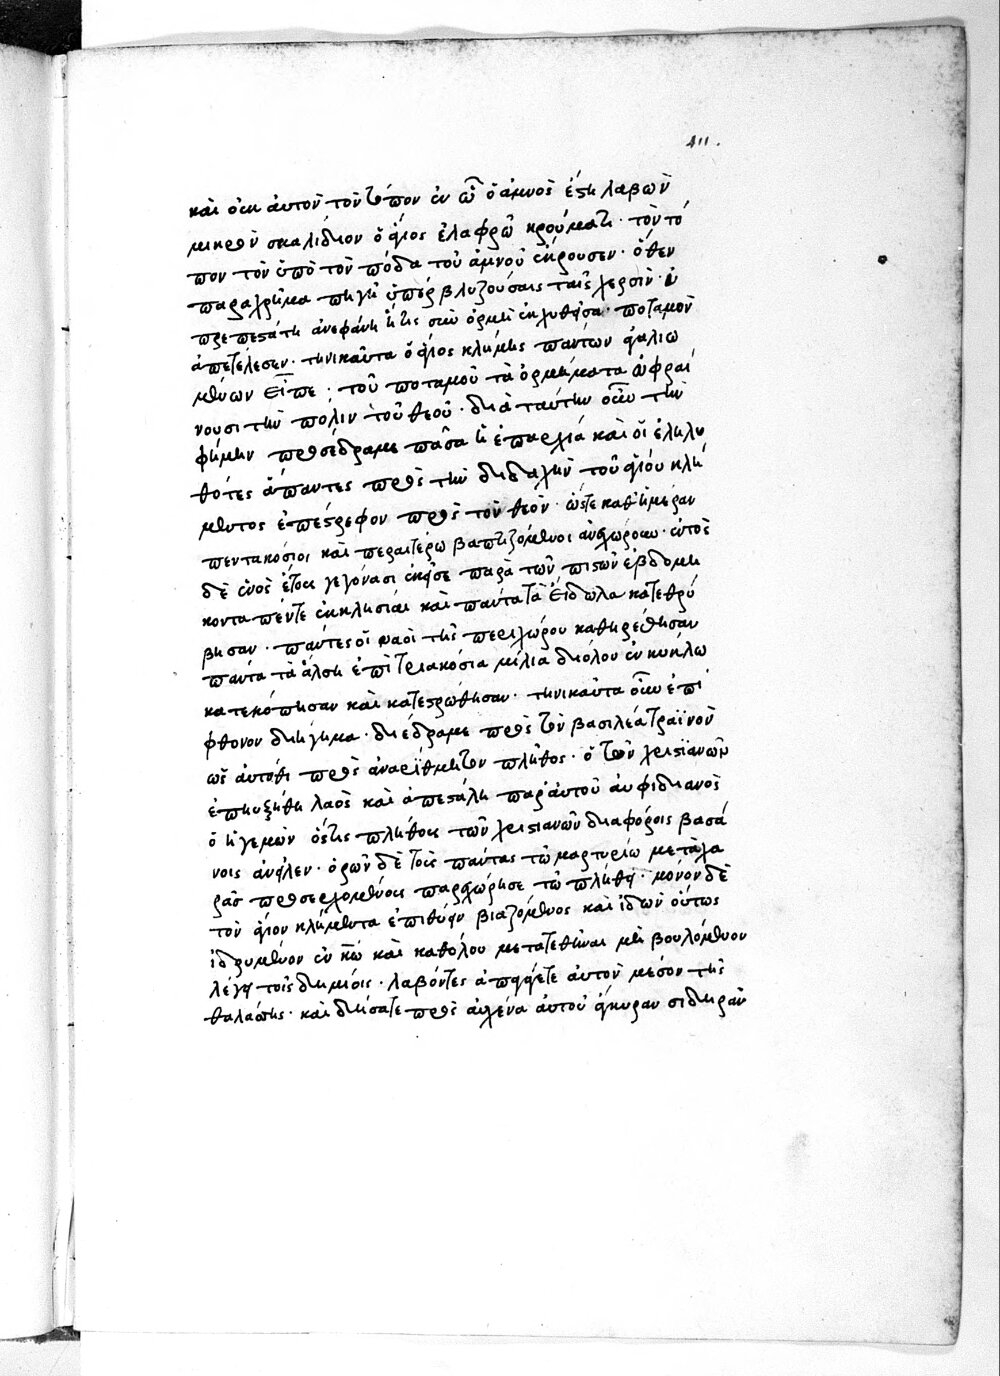 411.
καὶ οὐκ αὐτὸν τὸν τόπον ἐν ᾧ ὁ ἀμνὸς ἔστη λαβὼν
μικρὸν σκαλίδιον ὁ ἅγιος ἐλαφρῷ κρούματι· τὸν τό
πον τὸν ὑπὸ τὸν πόδα τοῦ ἀμνοῦ ἔκρουσεν· ὅθεν
παραχρῆμα πηγὴ ὑπερβλυζούσαις ταῖς
ἀνεφάνη ἥτις σὺν ὁρμῇ ποταμὸν
ἀπετέλεσεν· τηνικαῦτα ὁ ἅγιος κλήμης πάντων ἀγαλιω
μένων εἶπε; τοῦ ποταμοῦ τὰ ὁρμήματα εὐφραί
νουσι τὴν πόλιν τοῦ θεοῦ· διὰ ταύτην οὖν τὴν
φήμην προσέδραμε πᾶσα ἡ ἐπαρχία καὶ οἱ ἐληλυ
θότες ἅπαντες πρὸς τὴν διδαχὴν τοῦ ἁγίου κλή
μεντος ἐπέστρεφον πρὸς τὸν θεόν· ὥστε καθημέραν
πεντακόσιοι καὶ περαιτέρω βαπτιζόμενοι ἀνεχώρουν· ἐντὸς
δὲ ἑνὸς ἔτους γεγόνασι ἐκεῖσε παρὰ τῶν πιστῶν ἑβδομή
κοντα πέντε ἐκκλησίαι καὶ πάντα τὰ εἴδωλα κατεθρύ
βησαν· πάντες οἱ ναοὶ τῆς περιχώρου καθηρέθησαν
πάντα τὰ ἄλση ἐπὶ τριακόσια μίλια διόλου ἐν κύκλω
κατεκόπησαν καὶ κατεστρώθησαν· τηνικαῦτα οὖν ἐπί
φθονον διήγημα· διέδραμε πρὸς τὸν βασιλέα τραϊνὸν
ὡς αὐτόθι πρὸς ἀναρίθμητον πλῆθος· ὁ τῶν χριστϊανῶν
ἐπηυξήθη λαὸς καὶ ἀπεστάλη παρ' αὐτοῦ αὐφιδιανὸς
ὁ ἡγεμὼν ὅστις πλήθους τῶν χριστιανῶν διαφόροις βασά
νοις ἀνεῖλεν· ὁρῶν δὲ τοὺς πάντας τῷ μαρτυρίω μετὰ χα
ρᾶς προσερχομένους παρεχώρησε τῷ πλήθει· μόνον δὲ
τὸν ἅγιον κλήμεντα ἐπιθύειν βιαζόμενος καὶ ἰδὼν οὕτως
ἱδρυμένον ἐν κῶ καὶ καθόλου μετατεθῆναι μὴ βουλόμενον
λέγει τοῖς δημίοις· λαβόντες ἀπαγάγετε αὐτὸν μέσον τῆς
θαλάσσης· καὶ δήσατε πρὸς αὐχένα αὐτοῦ ἄγκυραν σιδηρὰν